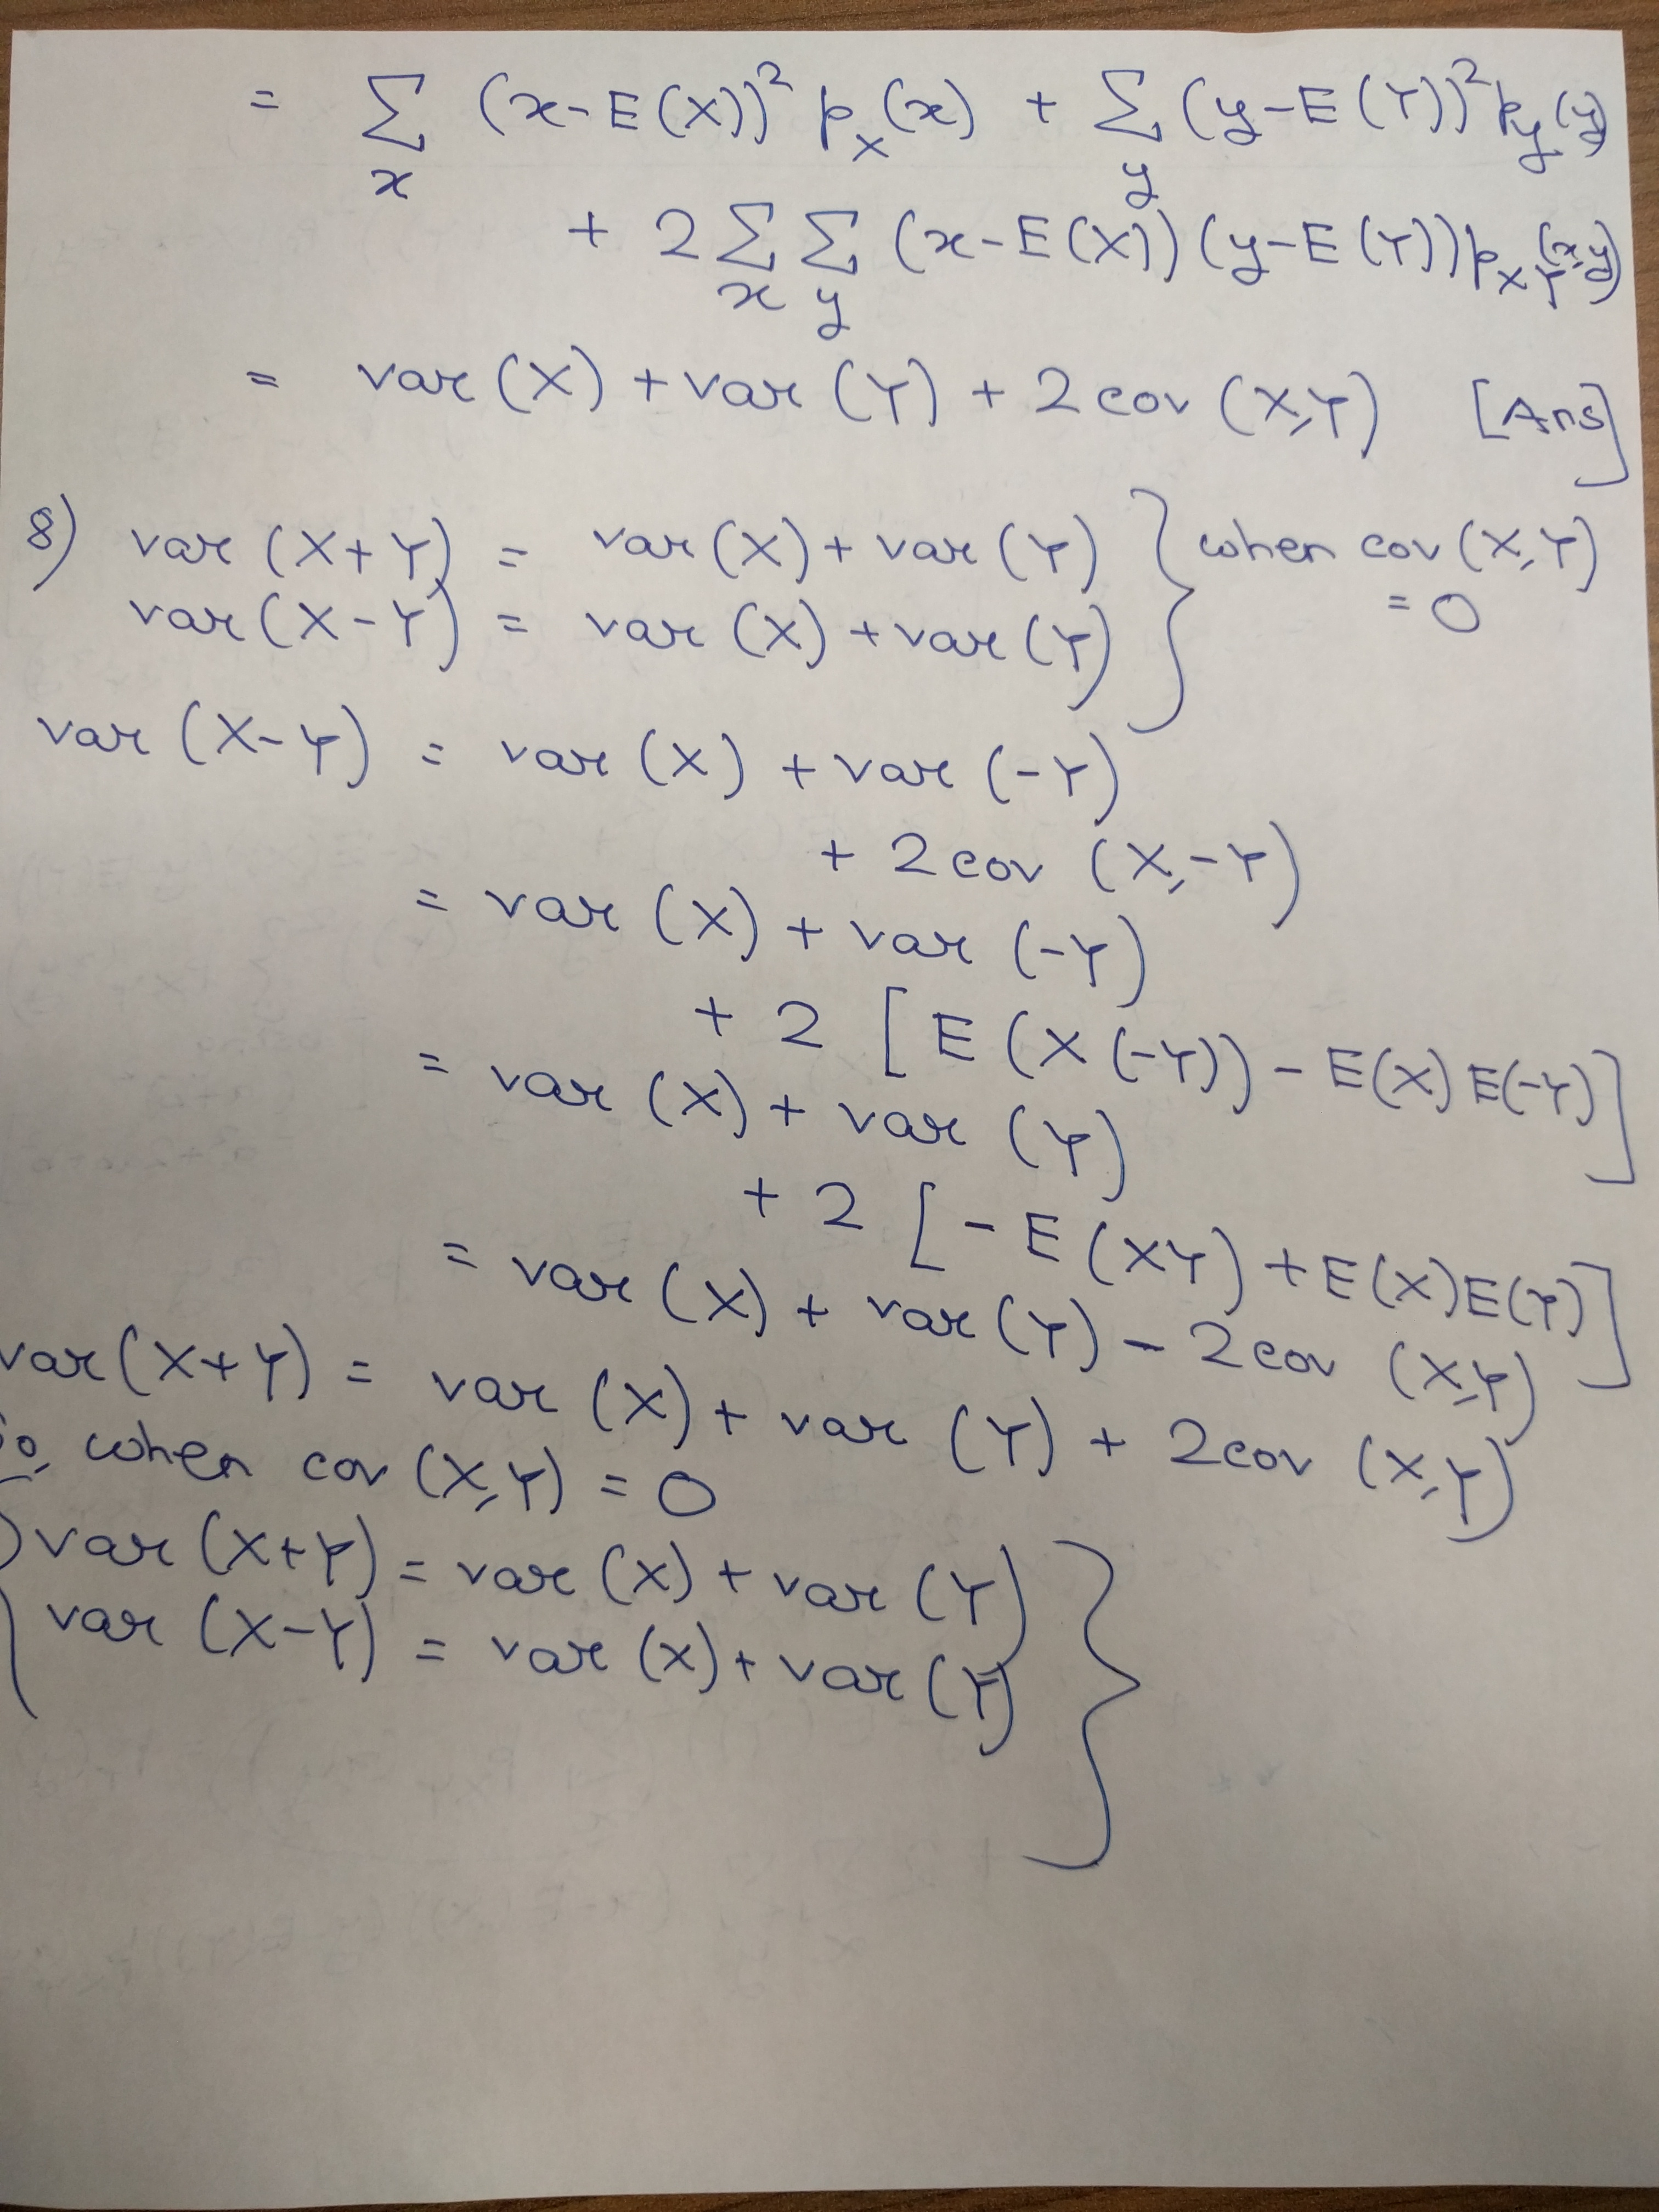 = Σ (x-E(X))² p_X(x) + Σ (y-E(Y))² p_y(y)
x y
+ 2 Σ Σ (x-E(X)) (y-E(Y)) p_XY(x,y)
x y
= var (X) + var (Y) + 2 cov (X,Y) [Ans]
8) var (X+Y) = var (X) + var (Y) } when cov (X,Y)
var (X-Y) = var (X) + var (Y) = 0
var (X-Y) = var (X) + var (-Y)
+ 2 cov (X,-Y)
= var (X) + var (-Y)
+ 2 [E (X (-Y)) - E(X) E(-Y)]
= var (X) + var (Y)
+ 2 [- E (XY) + E(X) E(Y)]
= var (X) + var (Y) - 2 cov (X,Y)
var (X+Y) = var (X) + var (Y) + 2 cov (X,Y)
So, when cov (X,Y) = 0
var (X+Y) = var (X) + var (Y) }
var (X-Y) = var (X) + var (Y)